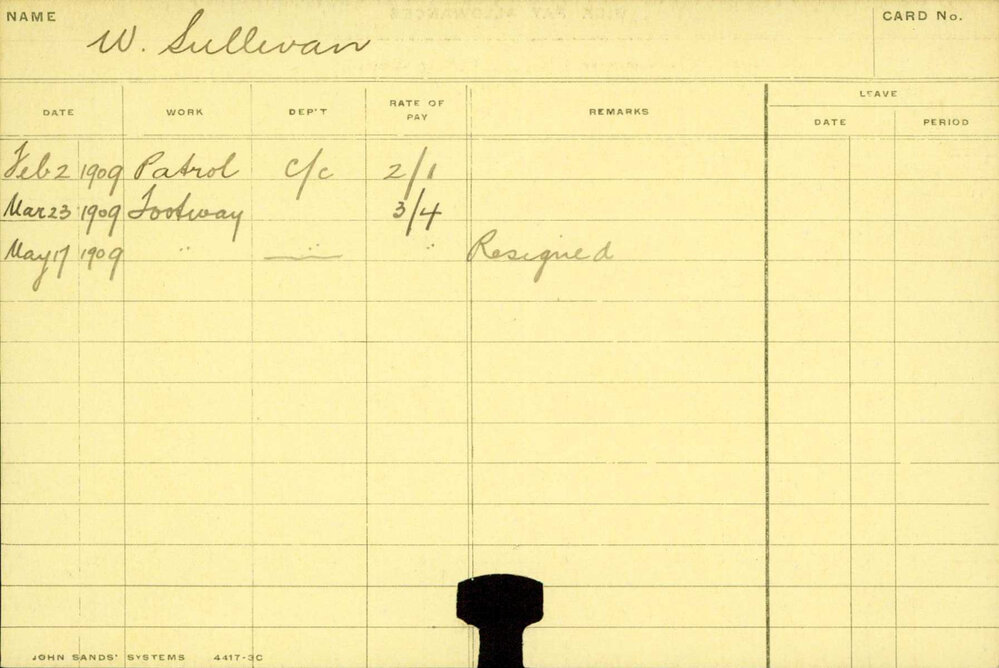 NAME W. Sullivan CARD No.
LEAVE
DATE WORK DEP'T RATE OF PAY REMARKS DATE PERIOD
Feb 2 1909 Patrol C/C 2/1
Mar 23 1909 Footway 3/4
May 17 1909 " " " Resigned
JOHN SANDS' SYSTEMS 4417-3C